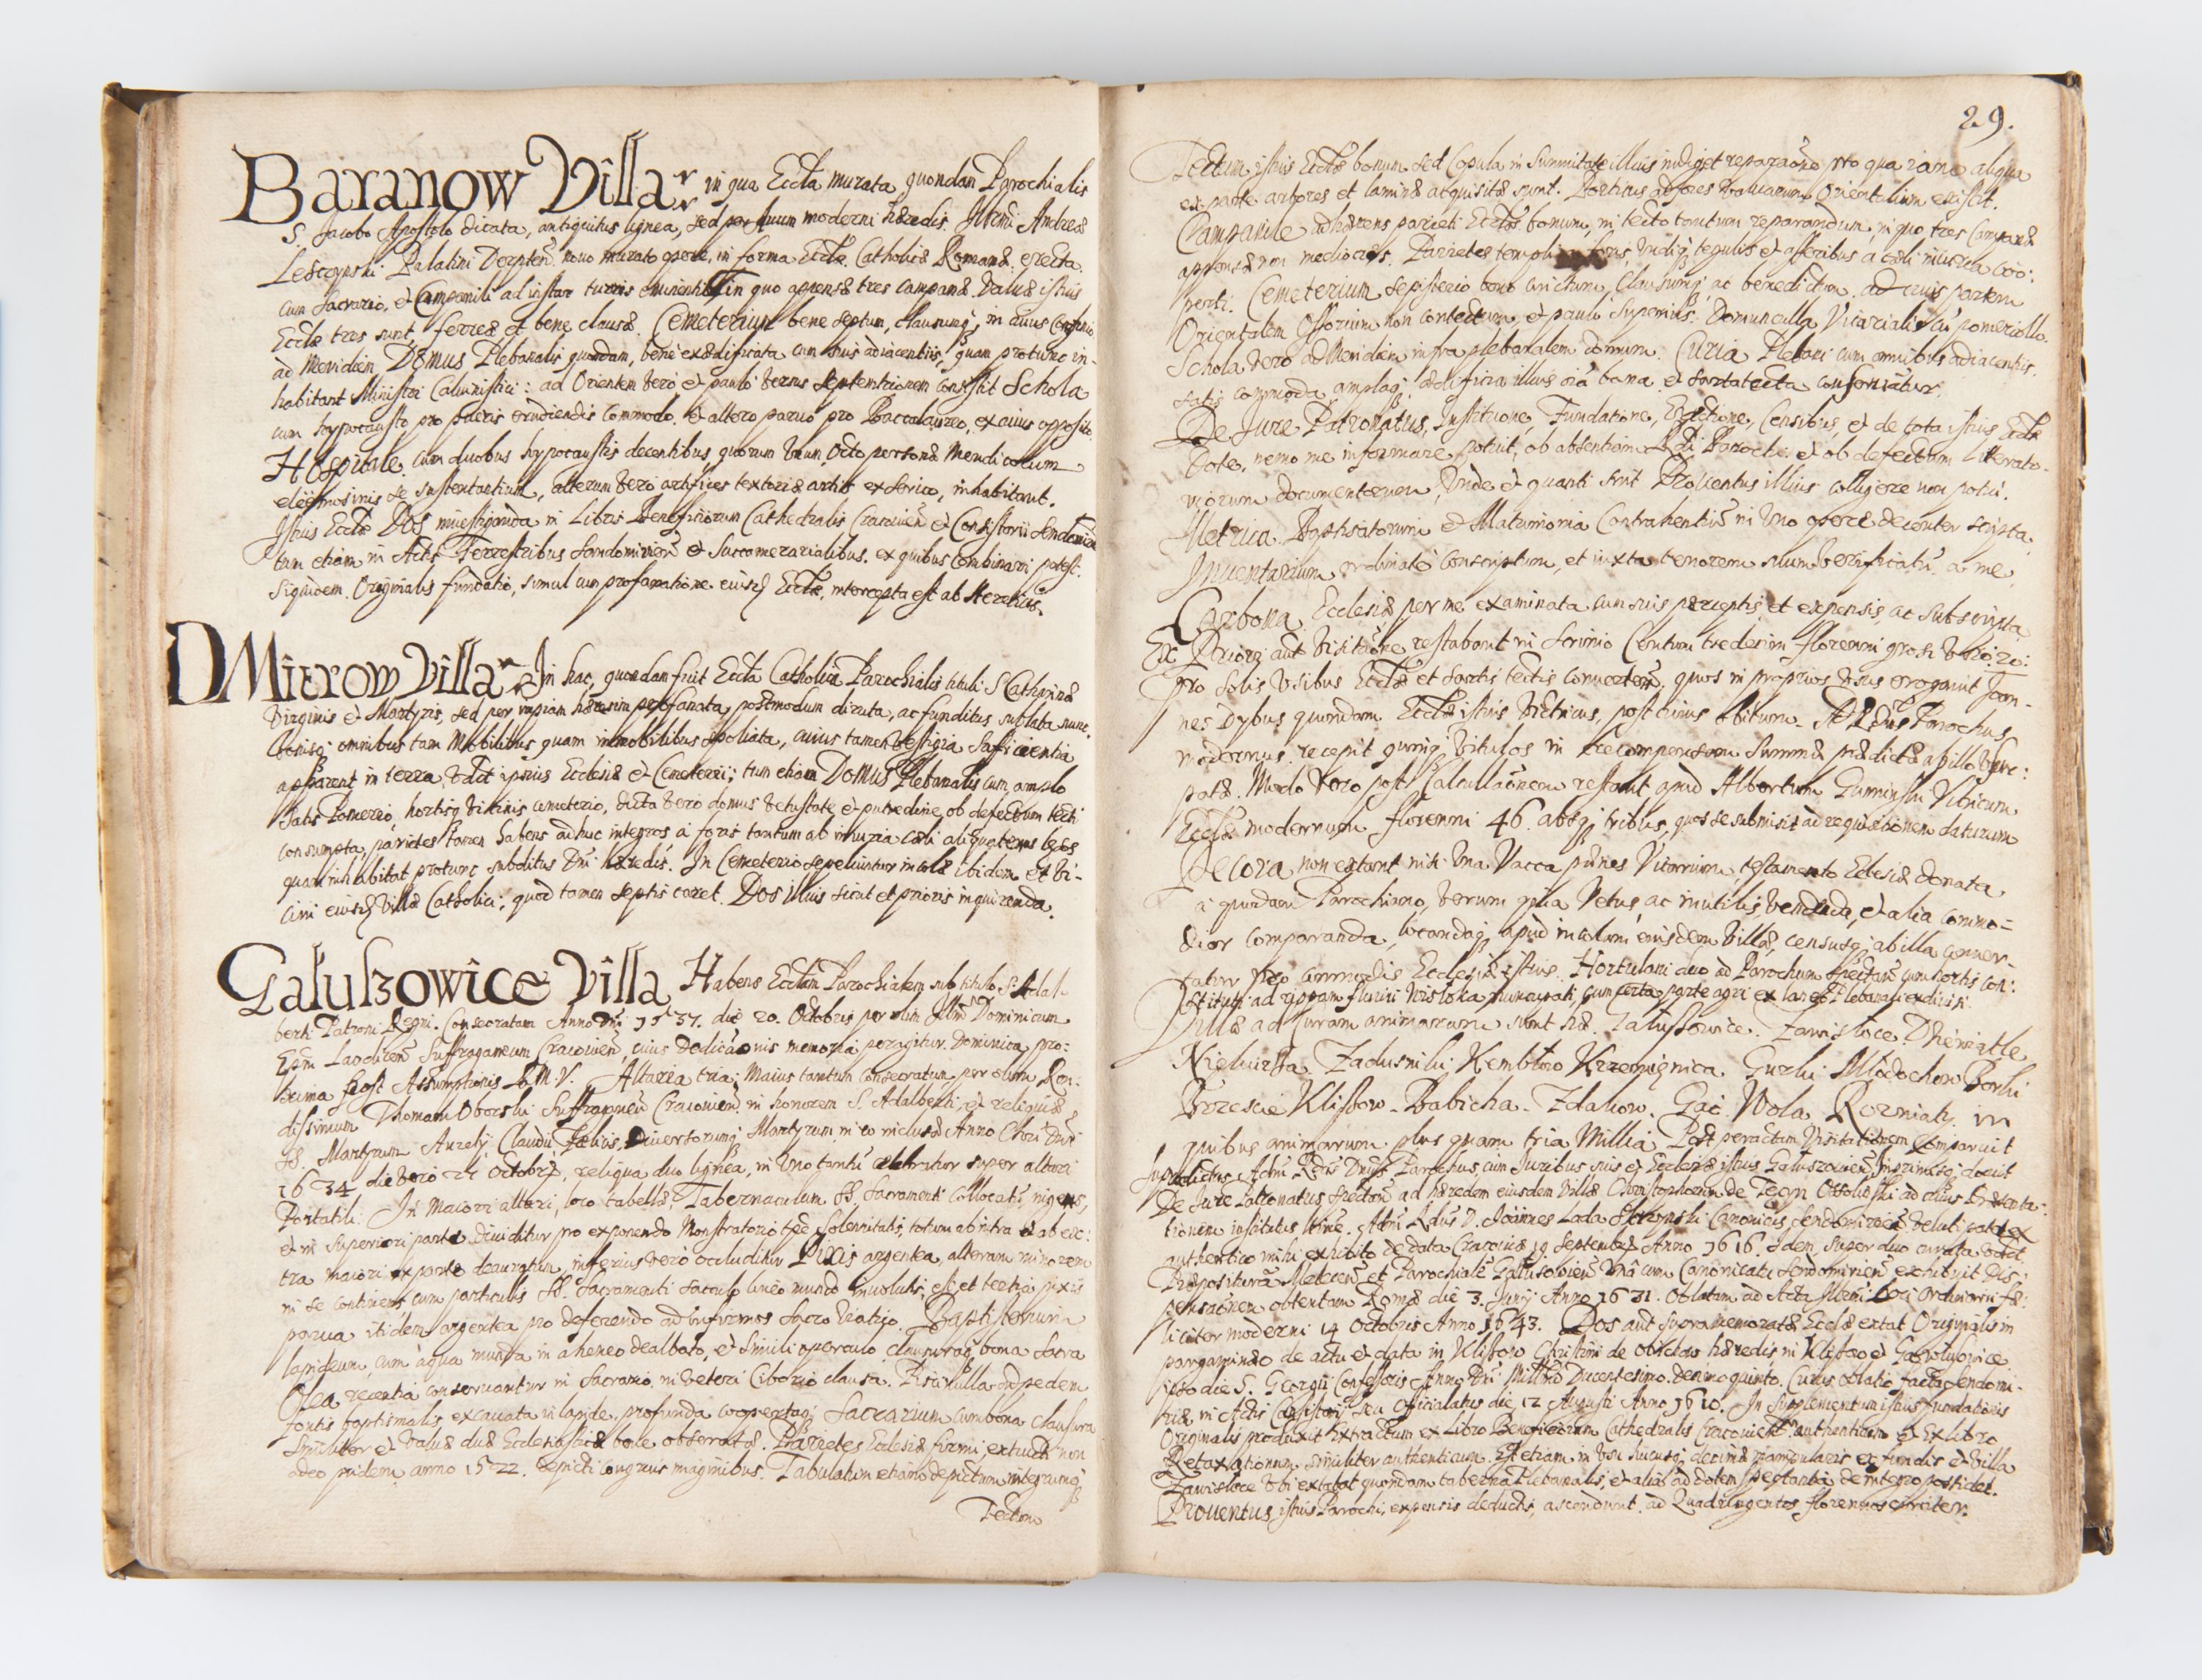 Baranow Villa. in qua Eccła murata quondam Parochialis
S. Jacobo Apostolo dicata, antiquitus lignea, sed per suum moderni hæredis Illrmi Andreæ
Lesczynski Palatini Derpten. nouo murato opere, in forma Eccłæ Catholicæ Romanæ erecta
cum Sacrario, et Campanili ad instar turris eminentis in quo appensæ tres campanæ. Valuæ istius
Eccłæ tres sunt, ferreæ et bene clausæ. Cemeterium bene septum, clausumq, in cuius confinio
ad Meridiem, Domus Plebanalis quondam, bene exædificata cum suis adiacentiis, quam pro tunc in-
habitant Ministri Caluinistici: ad Orientem vero et paulo versus septentrionem consistit Schola
cum hypocausto pro pueris erudiendis commodo, et altero paruo pro Baccalaureo, ex cuius opposito
Hospitale, cum duobus hypocaustis decentibus quorum vnum, octo personæ Mendicorum
eleemosinis se sustentantium, alterum vero artifices textoriæ artis ex serico, inhabitant.
Istius Eccłæ Dos inuestiganda in Libris Beneficiorum Cathedralis Cracouien et Consistorii Sendomirien
tum etiam in Actis Terrestribus Sandomirien et Succamerarialibus. ex quibus combinari potest.
Siquidem Originalis fundatio, simul cum profanatione eiusd Eccłæ, intercepta est ab Hæreticis.
DMitrow Villa. In hac, quondam fuit Eccła Catholica Parochialis tituli S. Catharinæ
Virginis et Martyris, sed per impiam hæresim profanata, postmodum diruta, ac funditus sublata nunc
bonisq omnibus tam Mobilibus quam immobilibus spoliata, cuius tamen vestigia sufficientia
apparent in terra, vdlt ipsius Ecclesiæ et Cemeterii; tum etiam Domus Plebanalis cum amplo
satis Pomerio, hortisq vicinis cemeterio, dicta vero domus vetustate et putredine ob defectum tecti
consumpta, parietes tamen habens adhuc integros, a foris tantum ab iniuria cœli aliquatenus læsos
quam inhabitat pro tunc subditus Dni hæredis. In Cemeterio sepeliuntur incolæ ibidem et vi-
cini eiusd villæ Catholici, quod tamen septis caret. Dos illius sicut et prioris inquirenda.
Galuszowice Villa Habens Eccłam Parochialem sub titulo S. Adal-
berti Patroni Regni. Consecratam Anno Dni 1537. die 20. Octobris per olim Illrm Dominicum
Epm Laodicen Suffraganeum Cracouien, cuius dedicaonis memoria peragitur Dominica pro:
xima post Assumptionis B. M. V. Altaria tria; Maius tantum consecratum per olim Reu:
dissimum Thomam Oborski Suffraganeu Cracouien. in honorem S. Adalberti, et reliquiæ
SS. Martyrum Aurelij, Claudii, Fælicis, Diuersorumq Martyrum in eo inclusæ Anno Chri Dni
1634. die vero 25 octobrs, reliqua duo lignea, in vno tantu celebratur super altari
Portatili. In Maiori altari, loco tabellæ, Tabernaculum SS. Sacramenti collocatu, nigens,
et in superiori parte diuiditur pro exponendo Monstratorio tpe solennitatis, totum ab intra et ab ex:
tra maiori ex parte deauratum, inferius vero occluditur Pixis argentea, alteram minorem
in se continens cum particulis SS. Sacramenti sacculo lineo mundo inuolutis, est et tertia pixis
parua itidem argentea pro deferendo ad infirmos Sacro Viatico. Baptisterium
lapideum, cum aqua munda in aheneo dealbato, et simili operculo, clausuraq bona Sacra
Olea recentia conseruantur in Sacrario, in veteri Ciborio clausa. Piscinulla ad pedem
fontis baptismalis, excauata in lapide, profunda coopertaq Sacrarium cum bona clausura
similiter et valuæ duæ Ecclesiasticæ bene obseratæ. Parietes Ecclesiæ firmi extructi non
adeo pridem anno 1522. depicti congruis imaginibus. Tabulatum etiam depictum integrumq
Tectum
29.
Tectum istius Eccłæ bonum, sed Copula in summitate illius indiget reparaone pro qua iam aliqua
ex parte arbores et laminæ acquisitæ sunt. Porticus ad fores valuarum Orientalium existit.
Campanile adhærens parieti Eccłæ bonum, in tecto tantum reparandum, in quo tres Campanæ
appensæ non mediocres. Parietes templi a foris, vndiq tegulis et asseribus a cœli iniuria coo:
perti. Cemeterium sepisterio bono cinctum, clausumq, ac benedictum. ad cuius partem
Orientalem Ossorium non contectum, et paulo superius Domuncula Vicarialis cu pomeriollo.
Schola vero ad Meridiem infra plebanalem domum. Curia Plebani cum omnibus adiacentiis.
satis commoda amplaq ædificia illius oia bona et sartatecta conseruatur.
De Jure Patronatus, Institutione, Fundatione, Erectione, Censibus, et de tota istius Eccłæ
Dote, nemo me informare potuit, ob absentiam Rdi Parochi et ob defectum Litterato-
riorum documentorum, vnde et quanti sint Prouentus illius colligere non potui.
Metrica Baptisatorum et Matrimonia Contrahentiu in vno opere decenter scripta.
Inuentarium ordinate conscriptum, et iuxta tenorem suum verificatu a me.
Carbona Ecclesiæ per me examinata cum suis perceptis et expensis, ac subscripta
Ex Priori aut Visitaone restabant in Scrinio Centum tredecim floreni grosi vero 20:
pro solis vsibus Eccłæ et sartis tectis conuerten. quos in proprios vsus erogauit Joan-
nes Dybus quondam Eccłæ istius Vitricus, post cuius obitum Adm Rdus Parochus
modernus recepit quinq vitulos in recompensam summæ prædictæ ab illo vsur:
patæ. Modo vero post Calculaonem restant apud Albertum Guminski Vitricum
Eccłæ modernum floreni 46. absq tribus, quos se submisit ad requisitionem daturum
Pecora non extant nisi vna Vacca penes Vitricum, testamento Eclesiæ donata
a quodam Parochiano, verum quia Vetus, ac inutilis, vendenda, et alia commo=
dior comparanda, locandaq apud incolam eiusdem villæ, censusq ab illa conuer-
tatur pro commodis Ecclesiæ istius. Hortulani duo ad Parochum spectan cum hortis con:
stituti ad rippam fluuii Wisloka nuncupati, cum certa parte agri ex laneo Plebanali exdiuisi.
Villæ ad Curam animarum sunt hæ. Galuszowice. Zawisłoce. Chrząstle
Niedwiska Zaduszniki, Kembłow Krzemięnica. Gurki Młodochow Borki
Brzescie Kliszow. Babicha. Zdakow. Gac. Wola Rozniaty. in
quibus animarum plus quam tria Millia. Post peractam Visitationem comparuit
supradictus Adm Rdus Dnus Parochus, cum Juribus suis et Ecclesiæ istius Galuszouien, Inprimisq docuit
De Jure Patronatus spectan ad hæredem eiusdem villæ Christophorum de Teczyn Ossolinski ad cuius Præsenta:
tionem institutus tenet. Adm Rdus D. Joannes Loda Canonicus Sendomirien, veluti patet ex
authentico mihi exhibito de data Cracouiæ 19 Septembs Anno 1616. Idem super duo curata vdlt
Præposituram Mielecen et Parochiale Galusouien vna cum Canonicatu Sendomirien exhibuit Dis:
pensaonem obtentam Romæ die 3. Junij Anno 1631. Oblatam ad Acta Illrmi Loci Ordinarii fæ:
liciter moderni 14 Octobris Anno 1643. Dos aut supramemoratæ Eccłæ extat Originalis in
pargamineo de actu et data in Kliszow Christini de hæredis in Kliszow et Galuszowice
ipso die S. Georgii Confessoris Anno Dni Millmo Ducentesimo decimo quinto. Cuius oblatio facta Sendomi-
riæ in Actis Consistorij seu Officialatus die 12 Augusti Anno 1610. In supplementum istius fundationis
Originalis produxit Extractum ex Libro Beneficiorum Cathedralis Cracouien authenticum et ex Libro
Retaxationum similiter authenticum. Est etiam in vsu hucusq decimæ manipularis ex fundis et Villa
Zawisloce vbi extabat quondam taberna Plebanalis, et alia ad dotem spectantia de integro possidet.
Prouentus istius Parochi, expensis deductis, ascendunt ad Quadringentos florenos circiter.